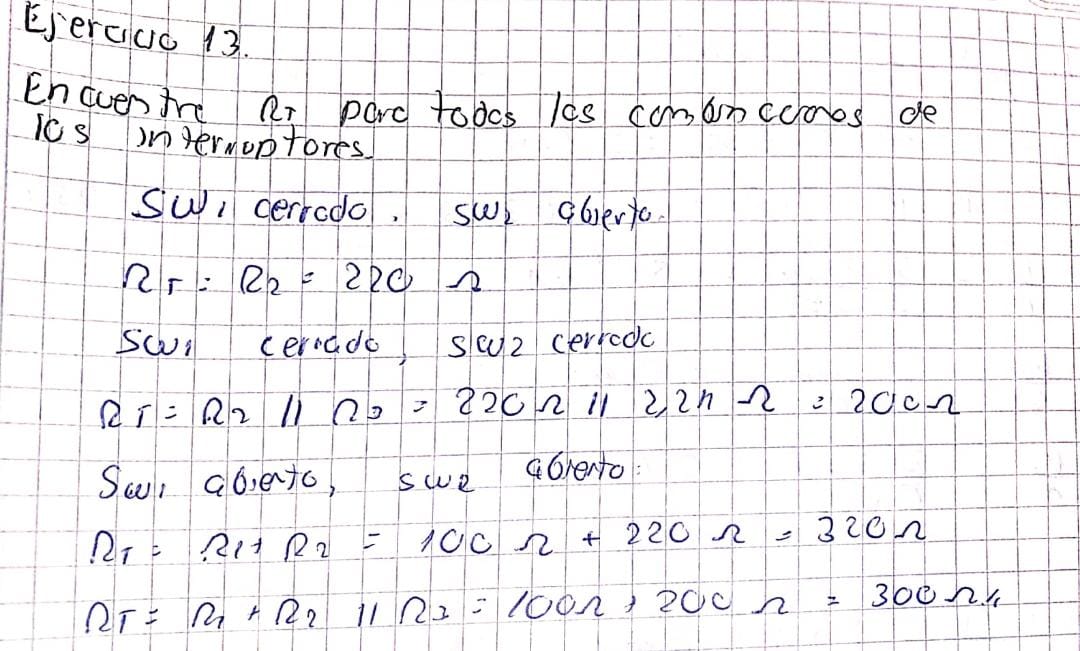 Ejercicio 13.
Encuentre RT para todas las combinaciones de
los interruptores.
SW1 cerrado, SW2 abierto.
RT = R2 = 220 Ω
SW1 cerrado, SW2 cerrado
RT = R2 // R3 = 220 Ω // 2,2k Ω = 200 Ω
SW1 abierto, SW2 abierto:
RT = R1 + R2 = 100 Ω + 220 Ω = 320 Ω
RT = R1 + R2 // R3 = 100 Ω + 200 Ω = 300 Ω